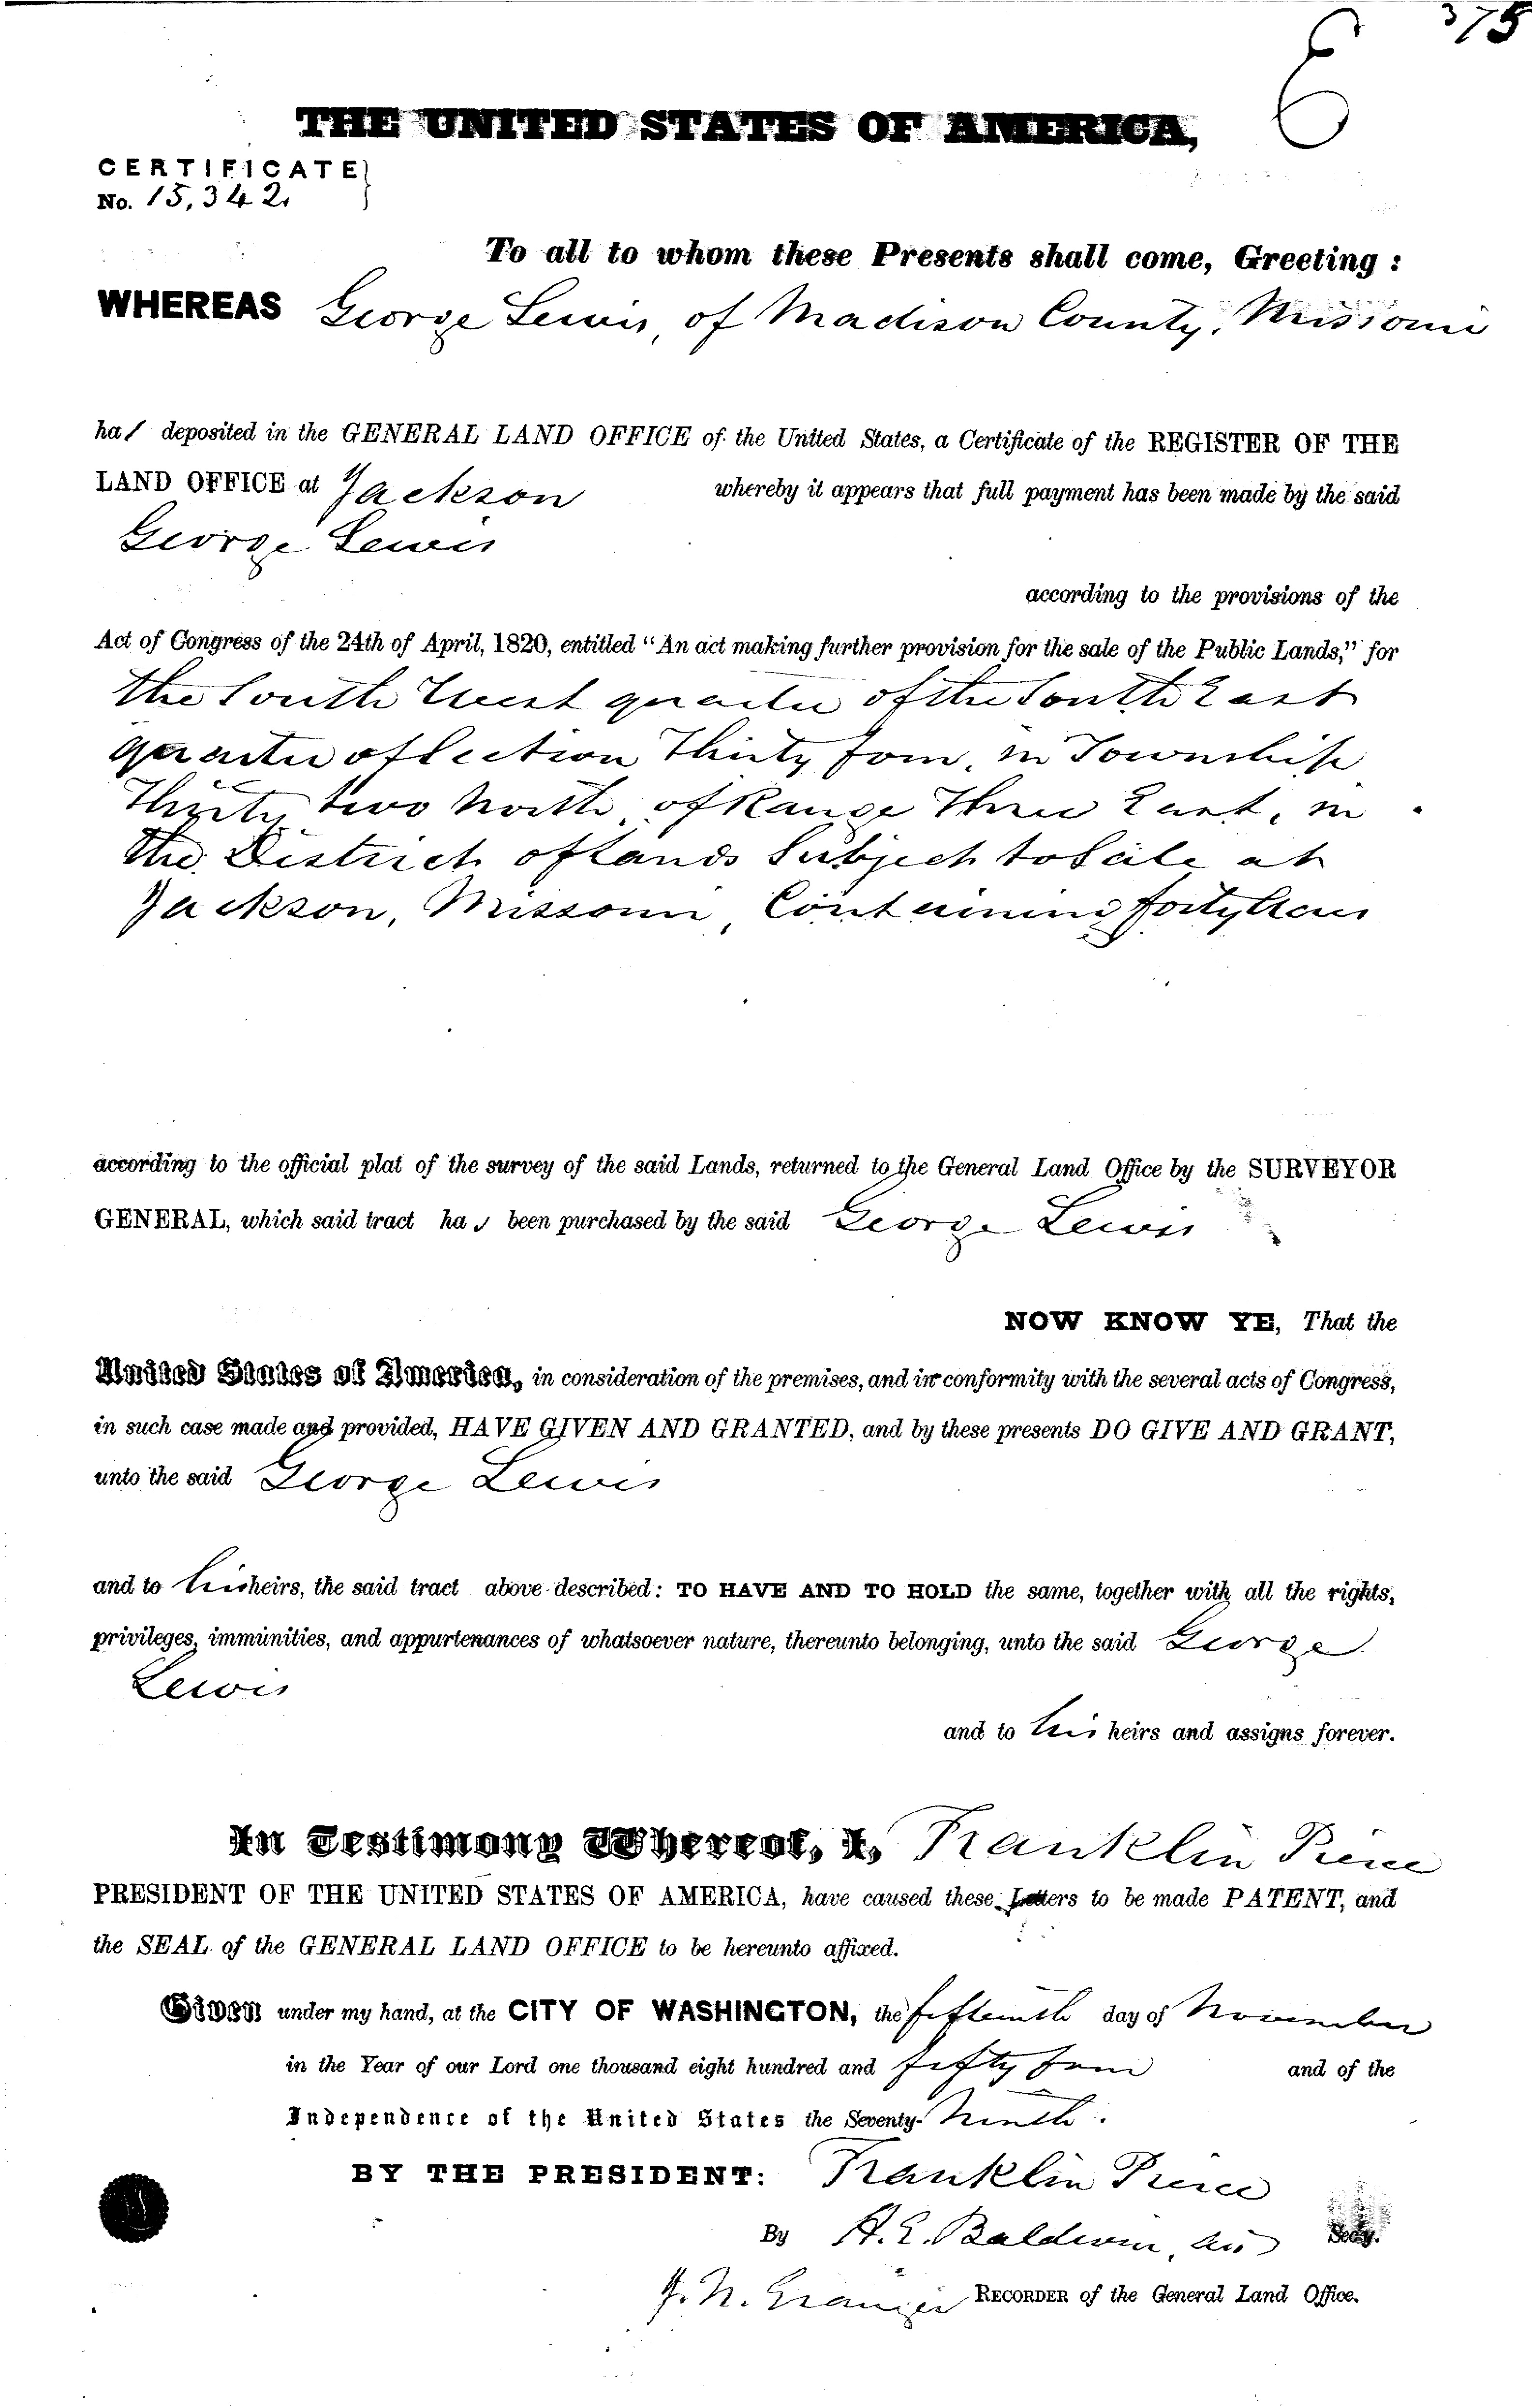 375
6
THE UNITED STATES OF AMERICA,
CERTIFICATE
No. 15,342.
To all to whom these Presents shall come, Greeting :
WHEREAS George Lewis, of Madison County, Missouri
has deposited in the GENERAL LAND OFFICE of the United States, a Certificate of the REGISTER OF THE
LAND OFFICE at Jackson whereby it appears that full payment has been made by the said
George Lewis
according to the provisions of the
Act of Congress of the 24th of April, 1820, entitled "An act making further provision for the sale of the Public Lands," for
the South West quarter of the South East
quarter of Section Thirty four, in Township
Thirty two North, of Range Three East, in
the District of lands Subject to Sale at
Jackson, Missouri, Containing forty Acres
according to the official plat of the survey of the said Lands, returned to the General Land Office by the SURVEYOR
GENERAL, which said tract has been purchased by the said George Lewis
NOW KNOW YE, That the
United States of America, in consideration of the premises, and in conformity with the several acts of Congress,
in such case made and provided, HAVE GIVEN AND GRANTED, and by these presents DO GIVE AND GRANT,
unto the said George Lewis
and to his heirs, the said tract above described: TO HAVE AND TO HOLD the same, together with all the rights,
privileges, immunities, and appurtenances of whatsoever nature, thereunto belonging, unto the said George
Lewis
and to his heirs and assigns forever.
In Testimony Whereof, I, Franklin Pierce
PRESIDENT OF THE UNITED STATES OF AMERICA, have caused these Letters to be made PATENT, and
the SEAL of the GENERAL LAND OFFICE to be hereunto affixed.
Given under my hand, at the CITY OF WASHINGTON, the fifteenth day of November
in the Year of our Lord one thousand eight hundred and fifty four and of the
Independence of the United States the Seventy-Ninth.
BY THE PRESIDENT: Franklin Pierce
By H. E. Baldwin, Sec'y.
J. N. Granger RECORDER of the General Land Office.